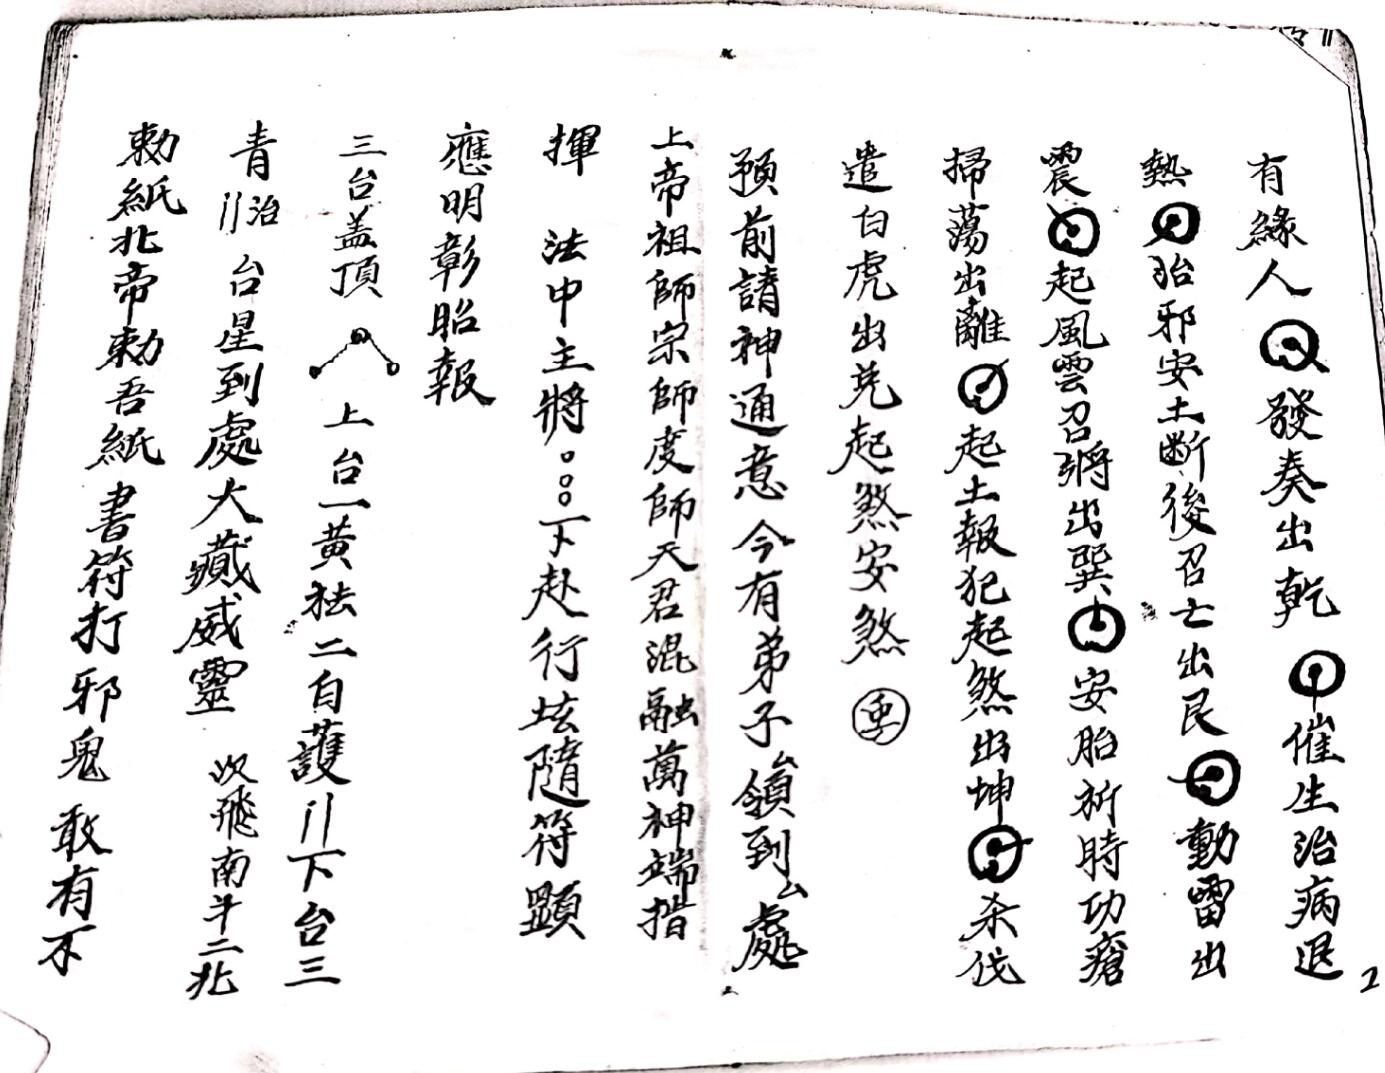 有緣人 發奏出乾 催生治病退
熱 胎邪安土斷後召亡出艮 動雷出
震 起風雲召將出巽 安胎祈時功瘡
掃蕩出離 起土報犯起煞出坤 杀伐
遣白虎出兌起煞安煞
預前請神通意今有弟子厶領到厶處
上帝祖師宗師度師天君混融萬神端指
揮 法中主將。。。下赴行坛隨符顯
應明彰昭報
三台盖頂 上台一黄祛二自護〢下台三
青〢治 台星到處大藏威靈 次飛南斗二北
勅紙北帝勅吾紙書符打邪鬼敢有不
2